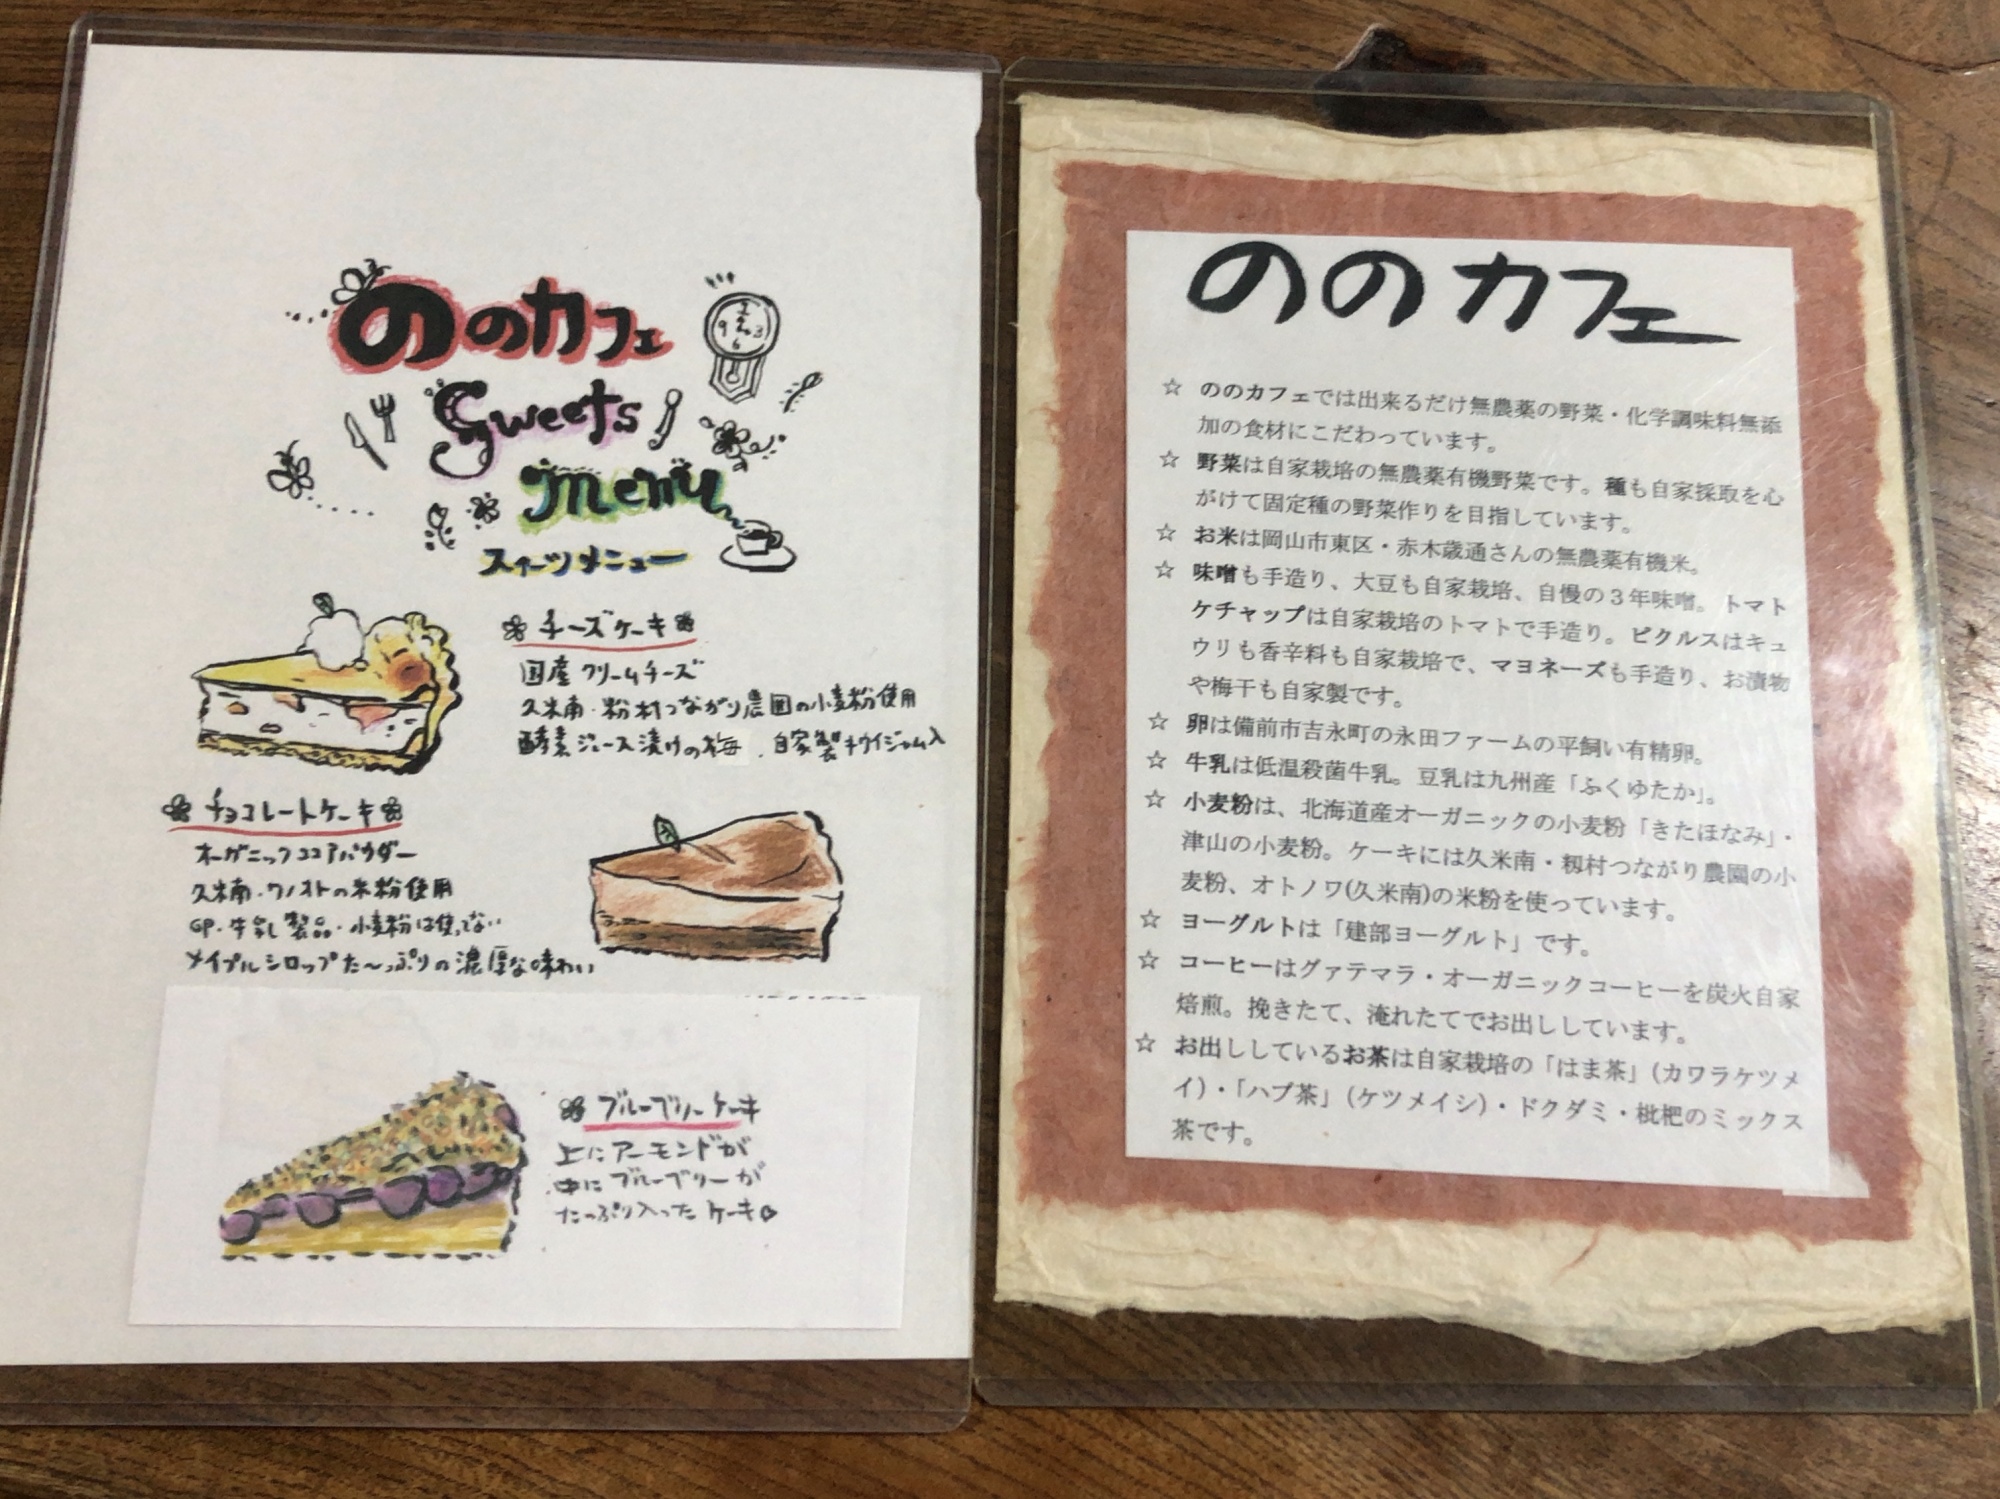 ののカフェ
Sweets
menu
スイーツメニュー
チーズケーキ
国産クリームチーズ
久米南・籾村つながり農園の小麦粉使用
酵素ジュース漬けの梅、自家製キウイジャム入
チョコレートケーキ
オーガニックココアパウダー
久米南・ワノオトの米粉使用
卵・牛乳製品・小麦粉は使ってない
メイプルシロップた〜っぷりの濃厚な味わい
ブルーブリーケーキ
上にアーモンドが
中にブルーブリーが
たっぷり入ったケーキ
ののカフェ
☆ ののカフェでは出来るだけ無農薬の野菜・化学調味料無添
加の食材にこだわっています。
☆ 野菜は自家栽培の無農薬有機野菜です。種も自家採取を心
がけて固定種の野菜作りを目指しています。
☆ お米は岡山市東区・赤木歳通さんの無農薬有機米。
☆ 味噌も手造り、大豆も自家栽培、自慢の3年味噌。トマト
ケチャップは自家栽培のトマトで手造り。ピクルスはキュ
ウリも香辛料も自家栽培で、マヨネーズも手造り、お漬物
や梅干も自家製です。
☆ 卵は備前市吉永町の永田ファームの平飼い有精卵。
☆ 牛乳は低温殺菌牛乳。豆乳は九州産「ふくゆたか」。
☆ 小麦粉は、北海道産オーガニックの小麦粉「きたほなみ」・
津山の小麦粉。ケーキには久米南・籾村つながり農園の小
麦粉、オトノワ(久米南)の米粉を使っています。
☆ ヨーグルトは「建部ヨーグルト」です。
☆ コーヒーはグァテマラ・オーガニックコーヒーを炭火自家
焙煎。挽きたて、淹れたてでお出ししています。
☆ お出ししているお茶は自家栽培の「はま茶」（カワラケツメ
イ）・「ハブ茶」（ケツメイシ）・ドクダミ・枇杷のミックス
茶です。